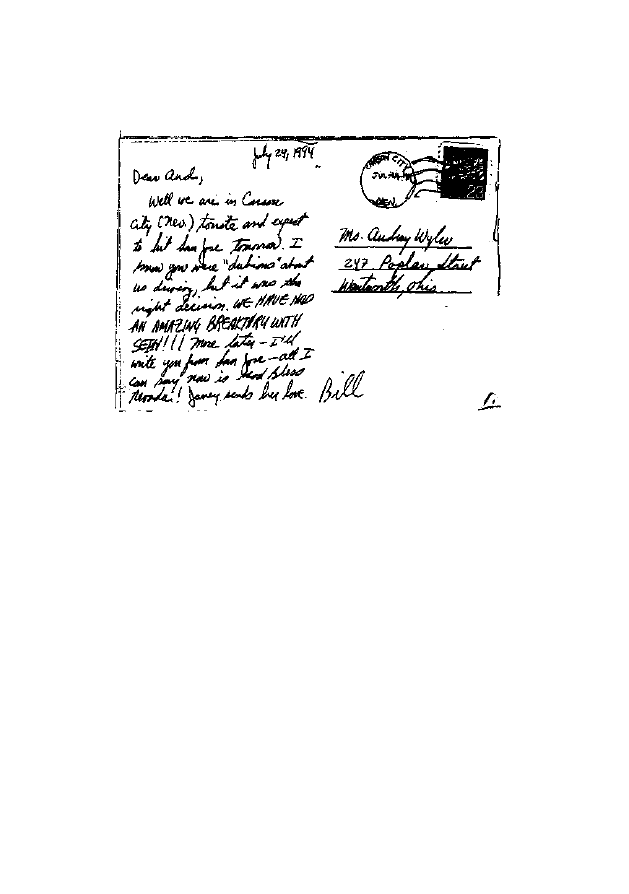 July 24, 1994
Dear Aud,
Well we are in Carson
City (Nev.) tonite and expect
to hit San Jose tomorrow. I
know you were "dubious" about
us driving, but it was the
right decision. WE HAVE HAD
AN AMAZING BREAKTHRU WITH
SETH!!! More later – I'll
write you from San Jose – all I
can say now is Send Bless
Nevada!! Janey sends her love. Bill
CARSON CITY
NEV.
Ms. Audrey Wyler
247 Poplar Street
Wentworth, Ohio
1.